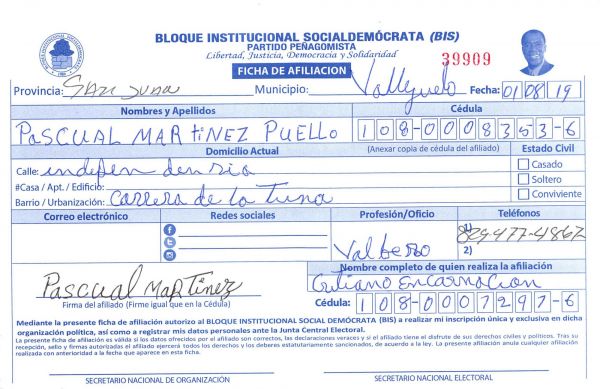 BLOQUE INSTITUCIONAL SOCIALDEMÓCRATA (BIS)
PARTIDO PEÑAGOMISTA
Libertad, Justicia, Democracia y Solidaridad
39909
FICHA DE AFILIACION
Provincia: San Juan Municipio: Vallejuelo Fecha: 01/08/19
Nombres y Apellidos Cédula
PASCUAL MARTINEZ PUELLO 108-0008353-6
Domicilio Actual (Anexar copia de cédula del afiliado) Estado Civil
Calle: indepen densia Casado
#Casa / Apt. / Edificio: Soltero
Barrio / Urbanización: Carrera de la Tuna Conviviente
Correo electrónico Redes sociales Profesión/Oficio Teléfonos
1) 829-477-4862
Valbero 2)
Nombre completo de quien realiza la afiliación
Pascual MARTINEZ Encarnacion
Firma del afiliado (Firme igual que en la Cédula) Cédula: 108-0007297-6
Mediante la presente ficha de afiliación autorizo al BLOQUE INSTITUCIONAL SOCIAL DEMÓCRATA (BIS) a realizar mi inscripción única y exclusiva en dicha
organización política, así como a registrar mis datos personales ante la Junta Central Electoral.
La presente ficha de afiliación es válida si los datos ofrecidos por el afiliado son correctos, las declaraciones veraces y si el afiliado tiene el disfrute de sus derechos civiles y políticos. Tras su
recepción, sello y firmas autorizadas el afiliado ejercerá todos los derechos y los deberes estatutariamente sancionados, de acuerdo a la ley. La presente afiliación anula cualquier afiliación
realizada con anterioridad a la fecha que aparece en esta ficha.
SECRETARIO NACIONAL DE ORGANIZACIÓN SECRETARIO NACIONAL ELECTORAL